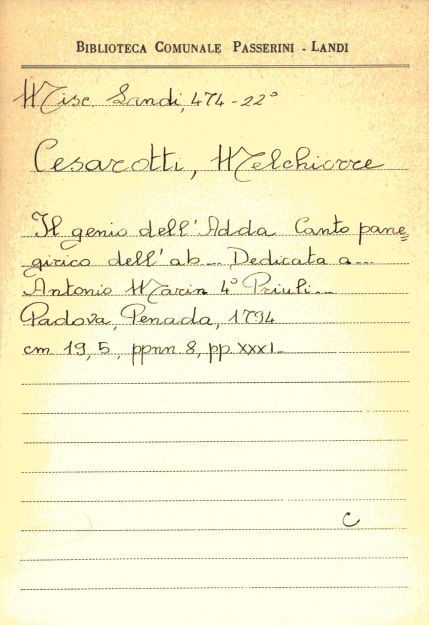 BIBLIOTECA COMUNALE PASSERINI - LANDI
Misc Landi, 474-22°
Cesarotti, Melchiorre
Il genio dell'Adda Canto pane=
girico dell'ab... Dedicata a...
Antonio Marin 4° Priuli...
Padova, Penada, 1794
cm 19,5, ppnn 8, pp. XXXI_
C